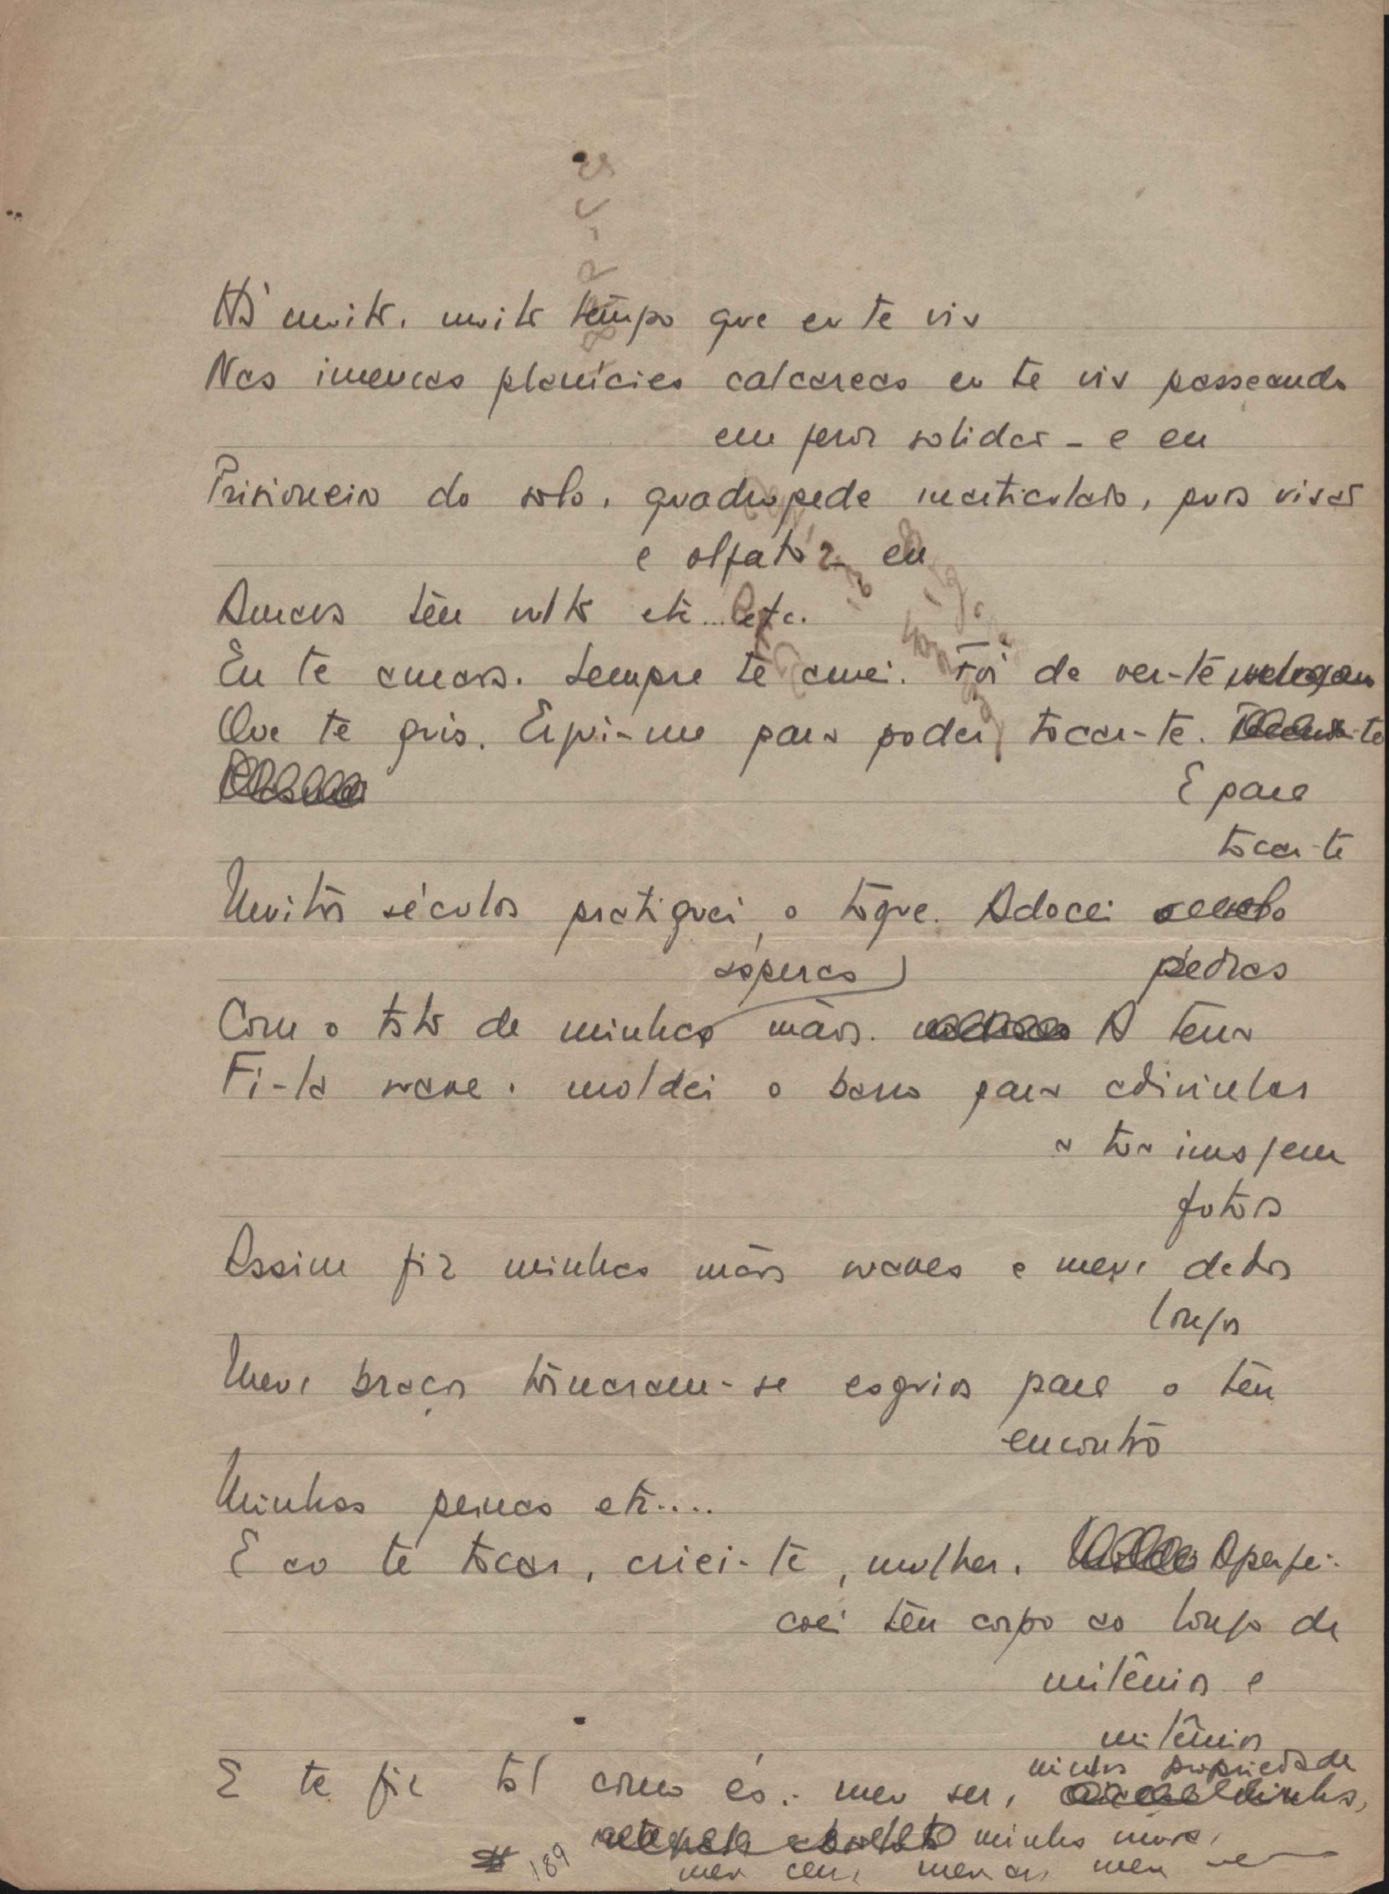 Há muito, muito tempo que eu te viu
Nas imensas planícies calcareas eu te viu passeando
em solidão - e eu
Prisioneiro do solo, quadrupede inarticulado, puro visão
e olfato - eu
Amava teu vulto etc... etc.
Eu te amava. Sempre te amei. Foi de ver-te
Que te quis. Ergui-me para poder tocar-te.
E para
tocar-te
Muitos séculos pratiquei o tôque. Adocei
ásperas pedras
Com o tato de minhas mãos. A terra
Fi-la suave. moldei o barro para adivinhar
a tua imagem
futura
Assim fiz minhas mãos suaves e meus dedos
longos
Meus braços tornaram-se esguios para o teu
encontro
Minhas pernas etc....
E ao te tocar, criei-te, mulher. Aperfei-
çoei teu corpo ao longo de
milênios e
milênios
minha propriedade
E te fiz tal como és: meu ser,
minha musa,
189 meu céu, meu ar, meu